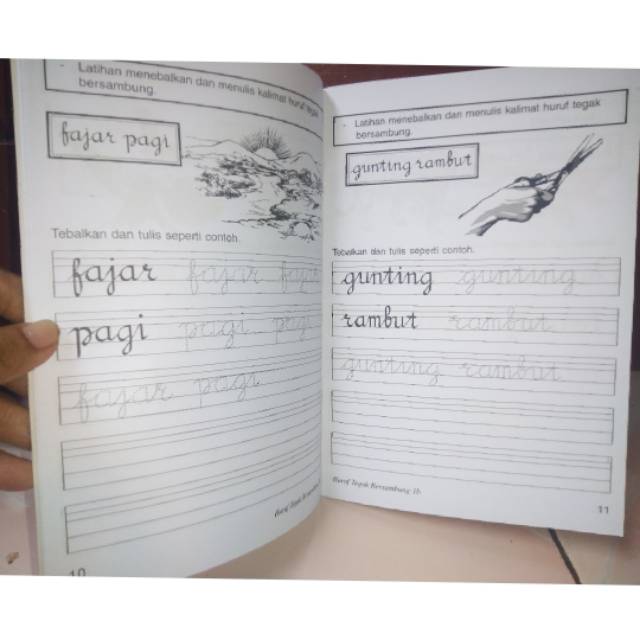 - Latihan menebalkan dan menulis kalimat huruf tegak
bersambung.
fajar pagi
Tebalkan dan tulis seperti contoh.
fajar fajar fajar
pagi pagi pagi
fajar pagi
Huruf Tegak Bersambung
10
- Latihan menebalkan dan menulis kalimat huruf tegak
bersambung.
gunting rambut
Tebalkan dan tulis seperti contoh.
gunting gunting
rambut rambut
gunting rambut
Huruf Tegak Bersambung 1b
11